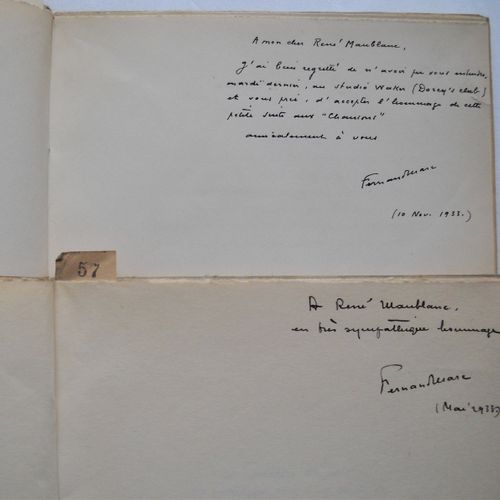 A mon cher René Maublanc,
J'ai bien regretté de n'avoir pu vous entendre,
mardi dernier, au studio Wacker (Dorcy's club)
et vous prie, d'accepter l'hommage de cette
petite suite aux "Chansons"
amicalement à vous
Fernand Marc
(10 Nov. 1933.)
57
A René Maublanc,
en très sympathique hommage
Fernand Marc
(Mai 1933)